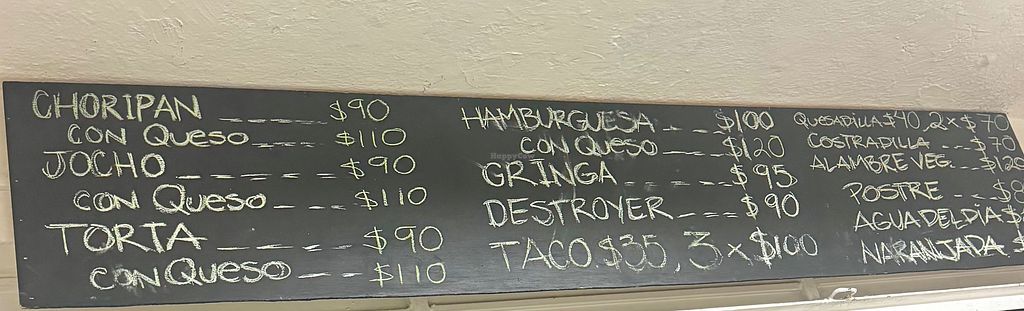 CHORIPAN _ _ _ _ _ $90
CON QUESO _ _ _ _ $110
JOCHO _ _ _ _ _ _ $90
CON QUESO _ _ _ _ $110
TORTA _ _ _ _ _ $90
CON QUESO _ _ _ $110
HAMBURGUESA _ _ _ $100
CON QUESO _ _ _ $120
GRINGA _ _ _ _ _ $95
DESTROYER _ _ _ _ $90
TACO $35, 3 x $100
QUESADILLA $40, 2 x $70
COSTRADILLA _ _ _ $70
ALAMBRE VEG. _ _ _ $120
POSTRE _ _ _ $
AGUA DEL DÍA $
NARANJADA $
HappyCow